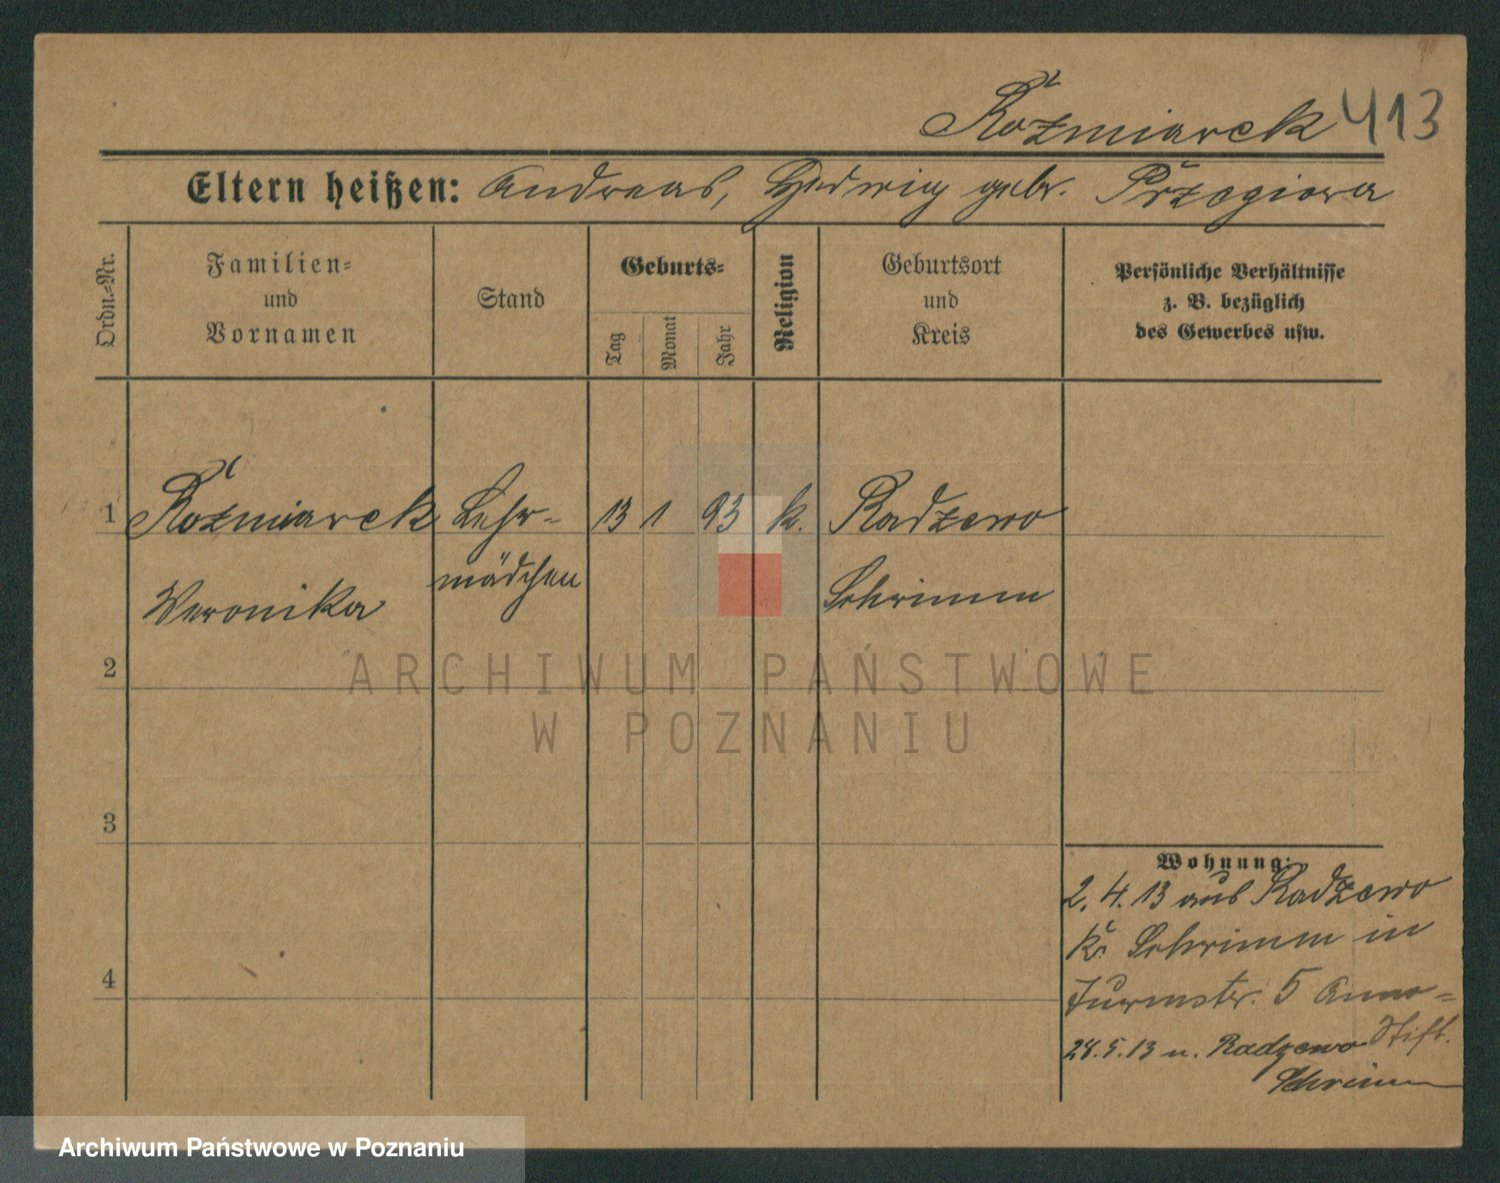 Koźmiarek 413
Eltern heißen: Andreas, Hedwig gebr.
Ordn.-Nr.
Familien- und Vornamen
Stand
Geburts-
Tag
Monat
Jahr
Religion
Geburtsort und Kreis
Persönliche Verhältnisse
z. B. bezüglich
des Gewerbes usw.
1 Koźmiarek Lehr- 13 1 93 k. Radzewo
Veronika mädchen Schrimm
2
3
4
Wohnung:
2.4.13 aus Radzewo
Kr. Schrimm in
Turmstr. 5 Anna-
Stift.
28.5.13 n. Radzewo
Schrimm
ARCHIWUM PAŃSTWOWE
W POZNANIU
Archiwum Państwowe w Poznaniu